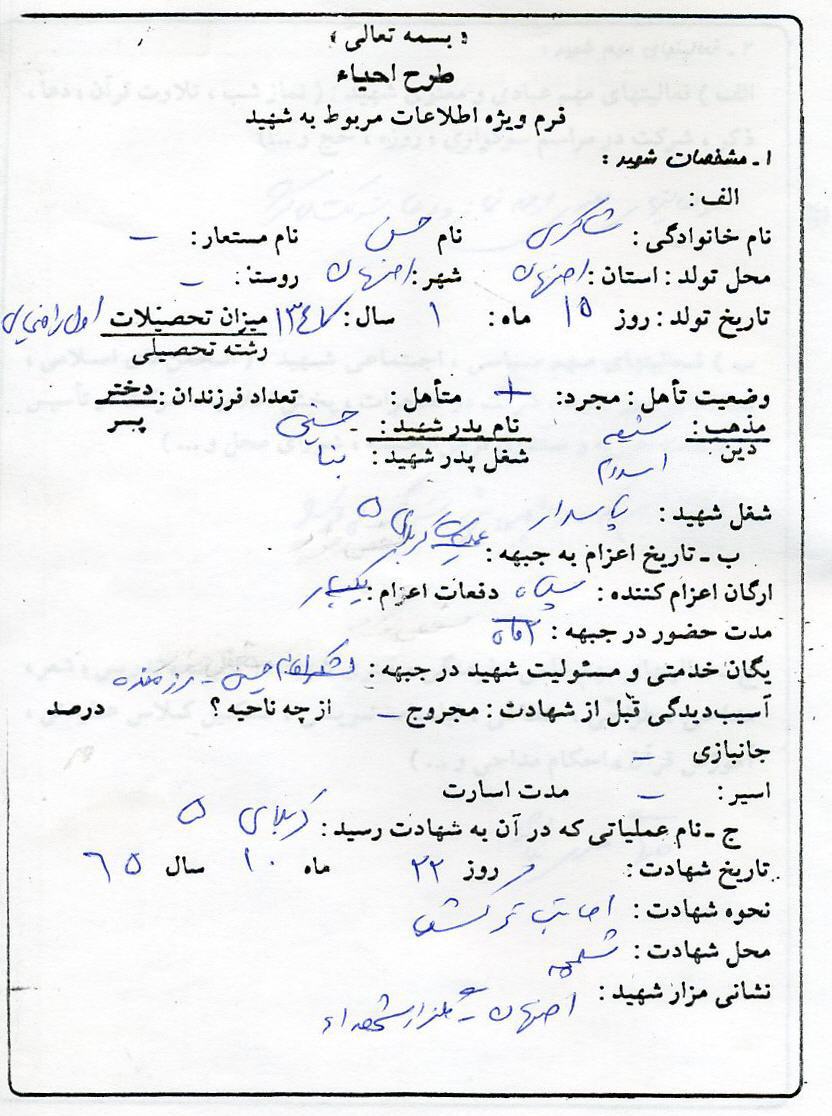 « بسمه تعالی »
طرح احیاء
فرم ویژه اطلاعات مربوط به شهید
۱ ـ مشخصات شهید :
الف :
نام خانوادگی : شاکری نام حسن نام مستعار : –
محل تولد : استان : اصفهان شهر : اصفهان روستا : –
تاریخ تولد : روز ۱۵ ماه : ۱ سال : ۱۳۴۷ میزان تحصیلات اول راهنمایی
رشته تحصیلی
وضعیت تأهل : مجرد : + متأهل : تعداد فرزندان : دختر
مذهب : شیعه نام پدر شهید : حسینعلی پسر
دین اسلام شغل پدر شهید : بنا
شغل شهید : پاسدار
ب ـ تاریخ اعزام به جبهه : عملیات کربلای ۵
ارگان اعزام کننده : سپاه دفعات اعزام : یکبار
مدت حضور در جبهه : ۲ ماه
یگان خدمتی و مسئولیت شهید در جبهه : لشکر امام حسین – رزمنده
آسیب‌دیدگی قبل از شهادت : مجروح – از چه ناحیه ؟ درصد
جانبازی –
اسیر : – مدت اسارت
ج ـ نام عملیاتی که در آن به شهادت رسید : کربلای ۵
تاریخ شهادت : روز ۲۲ ماه ۱۰ سال ۶۵
نحوه شهادت : اصابت ترکش
محل شهادت : شلمچه
نشانی مزار شهید : اصفهان – گلزار شهداء